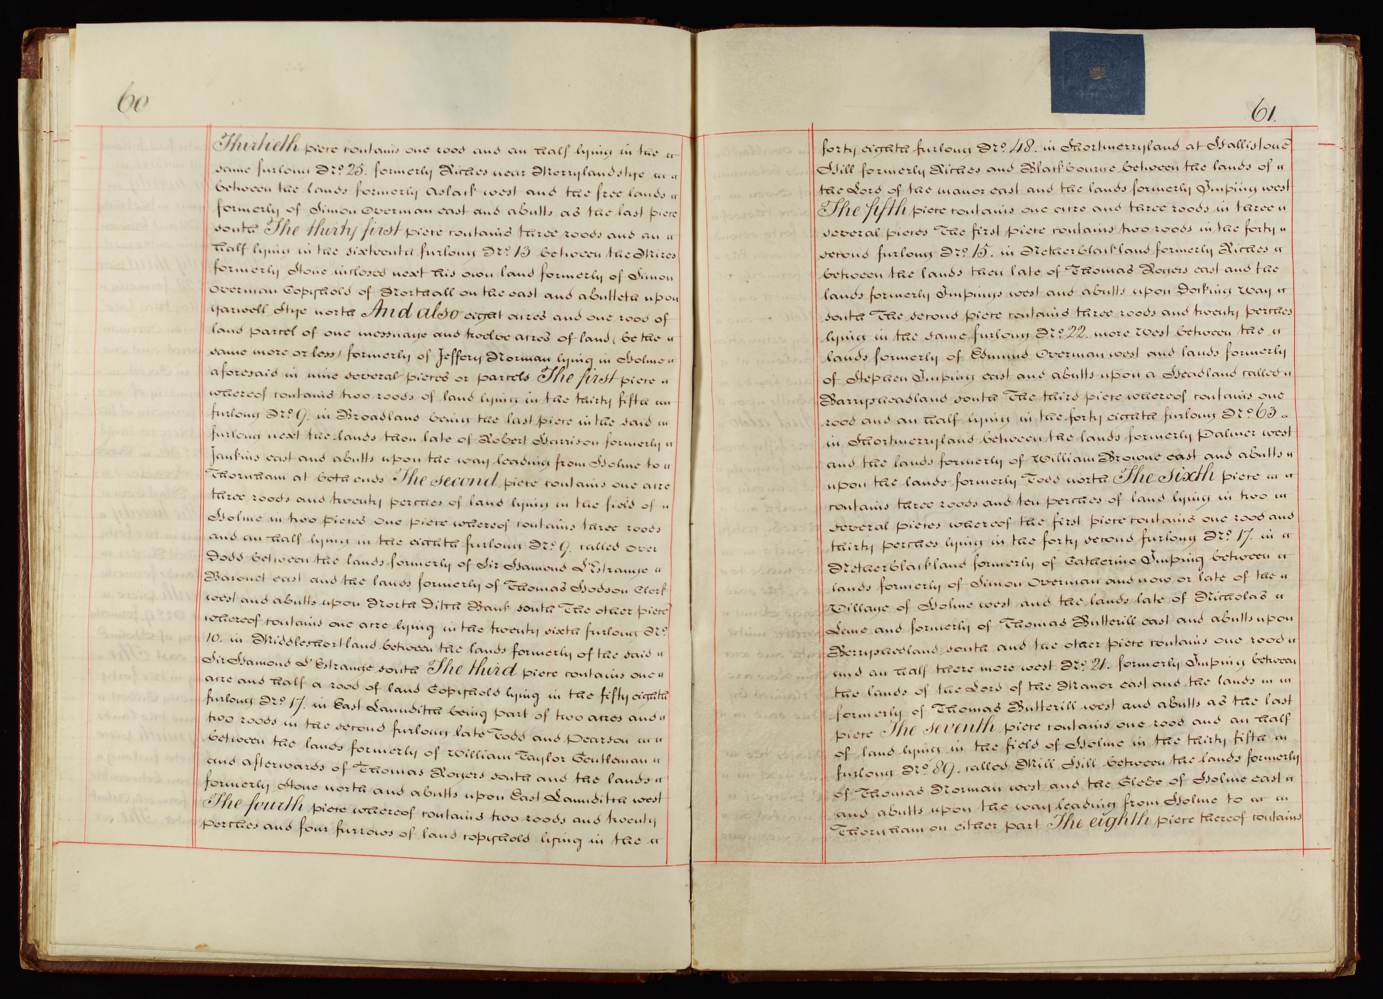 60
Thirtieth piece contains one rood and an half lying in the
same furlong No. 25. formerly Riches near Merrylandstye in
between the lands formerly Aslack west and the free lands
formerly of Simon Overman east and abutts as the last piece
south The thirty first piece contains three roods and an
half lying in the sixteenth furlong No. 13 between the Meres
formerly Stone inclosed next his own land formerly of Simon
Overman Copyhold of Northall on the east and abutteth upon
Yarwell Stye north And also eight acres and one rood of
land parcel of one messuage and twelve acres of land (be the
same more or less) formerly of Jeffery Norman lying in Holme
aforesaid in nine several pieces or parcels The first piece
whereof contains two roods of land lying in the thirty fifth
furlong No. 9. in Broadland being the last piece in the said
furlong next the lands then late of Robert Harrison formerly
Jenkins east and abutts upon the way leading from Holme to
Thornham at both ends The second piece contains one acre
three roods and twenty perches of land lying in the field of
Holme in two pieces One piece whereof contains three roods
and an half lying in the eighth furlong No. 9. called Over
Dods between the lands formerly of Sir Hamond L'Estrange
Baronet east and the lands formerly of Thomas Hodson Clerk
west and abutts upon North Ditch Bank south The other piece
whereof contains one acre lying in the twenty sixth furlong No.
10. in Middleshortland between the lands formerly of the said
Sir Hamond L'Estrange south The third piece contains one
acre and half a rood of land Copyhold lying in the fifty eighth
furlong No. 17. in East Launditch being part of two acres and
two roods in the second furlong late Todd and Pearson in
between the lands formerly of William Taylor Gentleman
and afterwards of Thomas Rogers south and the lands
formerly Stone north and abutts upon East Launditch west
The fourth piece whereof contains two roods and twenty
perches and four furrows of land copyhold lying in the
61.
forty eighth furlong No. 48. in Shortmerryland at Hallistone
Hill formerly Riches and Blackbourne between the lands of
the Lord of the manor east and the lands formerly Imping west
The fifth piece contains one acre and three roods in three
several pieces The first piece contains two roods in the forty
second furlong No. 15. in Netherblackland formerly Riches
between the lands then late of Thomas Rogers east and the
lands formerly Impings west and abutts upon Docking way
south The second piece contains three roods and twenty perches
lying in the same furlong No. 22. more west between the
lands formerly of Edmund Overman west and lands formerly
of Stephen Imping east and abutts upon a Headland called
Barrysheadland south The third piece whereof contains one
rood and an half lying in the forty eighth furlong No. 63
in Shortmerryland between the lands formerly Palmer west
and the lands formerly of William Browne east and abutts
upon the lands formerly Todd north The Sixth piece in
contains three roods and ten perches of land lying in two in
several pieces whereof the first piece contains one rood and
thirty perches lying in the forty second furlong No. 17. in
Netherblackland formerly of Catherine Imping between
lands formerly of Simon Overman and now or late of the
Village of Holme west and the lands late of Nicholas
Lane and formerly of Thomas Butterill east and abutts upon
Berrysheadland south and the other piece contains one rood
and an half there more west No. 21. formerly Imping between
the lands of the Lord of the Manor east and the lands in
formerly of Thomas Butterill west and abutts as the last
piece The seventh piece contains one rood and an half
of land lying in the field of Holme in the thirty fifth
furlong No. 89. called Mill Hill between the lands formerly
of Thomas Norman west and the Glebe of Holme east
and abutts upon the way leading from Holme to
Thornham on either part The eighth piece thereof contains